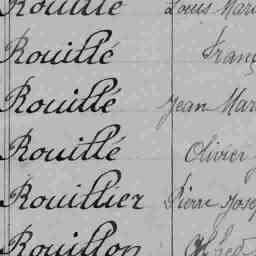 Rouillé Louis Mari
Rouillé Franç
Rouillé Jean Mar
Rouillé Olivier
Rouillier Pierre Jose
Rouillon